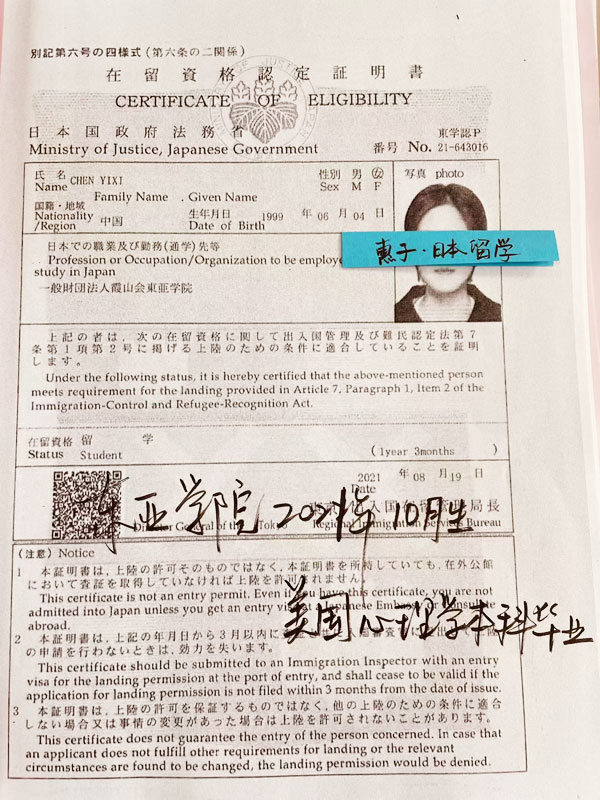 別記第六号の四様式(第六条の二関係)
在留資格認定証明書
CERTIFICATE OF ELIGIBILITY
日本国政府法務省
東学認P
Ministry of Justice, Japanese Government
番号 No. 21-643016
氏名 CHEN YIXI
性別 男 女
写真 photo
Name
Sex M F
Family Name Given Name
国籍・地域
Nationality
/Region 中国
生年月日 1999 年 06 月 04 日
Date of Birth
惠子·日本留学
日本での職業及び勤務(通学)先等
Profession or Occupation/Organization to be employe
study in Japan
一般財団法人霞山会東亜学院
上記の者は、次の在留資格に関して出入国管理及び難民認定法第7
条第1項第2号に掲げる上陸のための条件に適合していることを証明
します。
Under the following status, it is hereby certified that the above-mentioned person
meets requirement for the landing provided in Article 7, Paragraph 1, Item 2 of the
Immigration-Control and Refugee-Recognition Act.
在留資格 留 学
Status Student
(1year 3months )
2021 年 08 月 19 日
Date
东亚学院 2021年10月生
入国 管理局長
Director General of the Tok Regional Immigration Services Bureau
(注意) Notice
1 本証明書は、上陸の許可そのものではなく、本証明書を所持していても、在外公館
において査証を取得していなければ上陸を許可されません。
This certificate is not an entry permit. Even if you have this certificate, you are not
admitted into Japan unless you get an entry vis Japanese Embassy or Consulate
abroad.
美国心理学本科毕业
2 本証明書は、上記の年月日から3月以内に
の申請を行わないときは、効力を失います。
This certificate should be submitted to an Immigration Inspector with an entry
visa for the landing permission at the port of entry, and shall cease to be valid if the
application for landing permission is not filed within 3 months from the date of issue.
3 本証明書は、上陸の許可を保証するものではなく、他の上陸のための条件に適合
しない場合又は事情の変更があった場合は上陸を許可されないことがあります。
This certificate does not guarantee the entry of the person concerned. In case that
an applicant does not fulfill other requirements for landing or the relevant
circumstances are found to be changed, the landing permission would be denied.